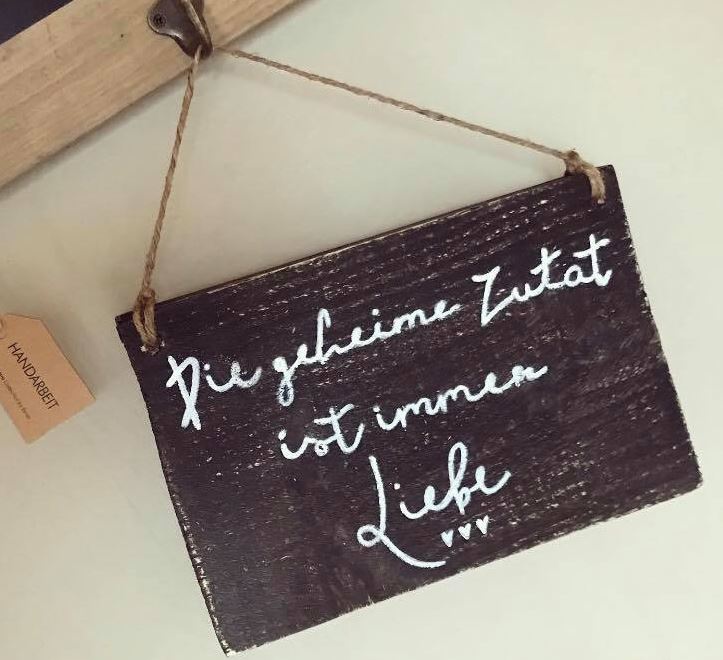 Die geheime Zutat
ist immer
Liebe
HANDARBEIT